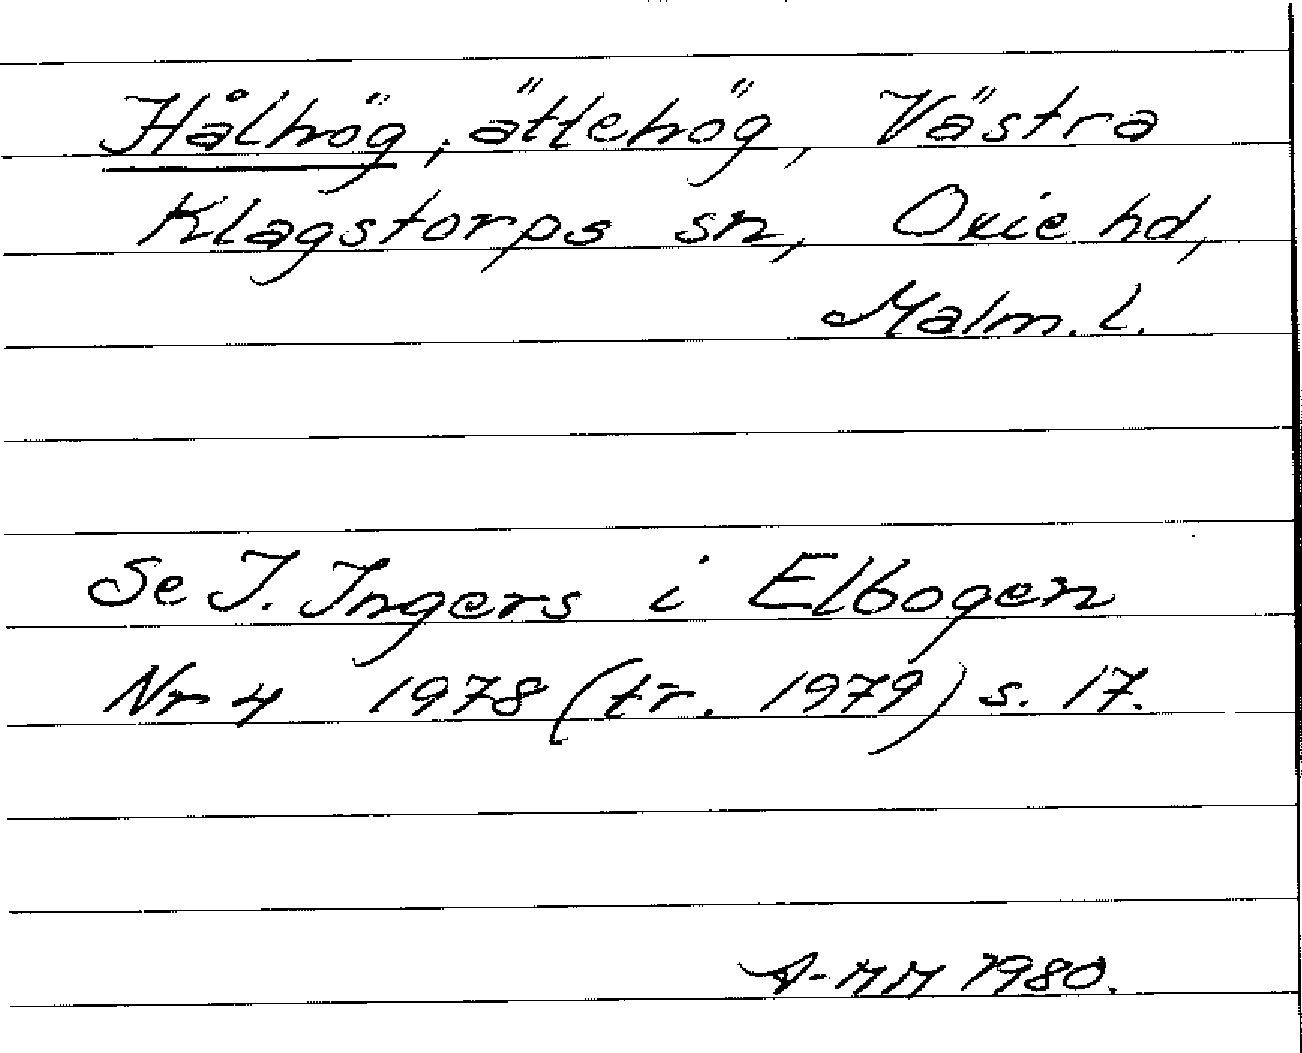 Hålhög, ättehög, Västra
Klagstorps sn, Oxie hd,
Malm. l.
Se I. Ingers i Elbogen
Nr 4 1978 (tr. 1979) s. 17.
A-MM 1980.